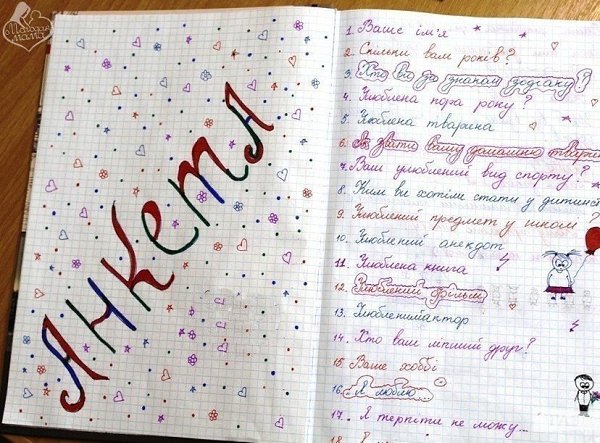 Молода мама
АНКЕТА
1. Ваше ім'я
2. Скільки вам років?
3. Хто ви за знаком зодіаку?
4. Улюблена пора року?
5. Улюблена тварина
6. Як звати вашу домашню тварин
7. Ваш улюблений вид спорту?
8. Ким ви хотіли стати у дитинст
9. Улюблений предмет у школі?
10. Улюблений анекдот
11. Улюблена книга
12. Улюблений фільм
13. Улюблений актор
14. Хто ваш ліпший друг?
15. Ваше хоббі
16. Я люблю
17. Я терпіти не можу...
18.